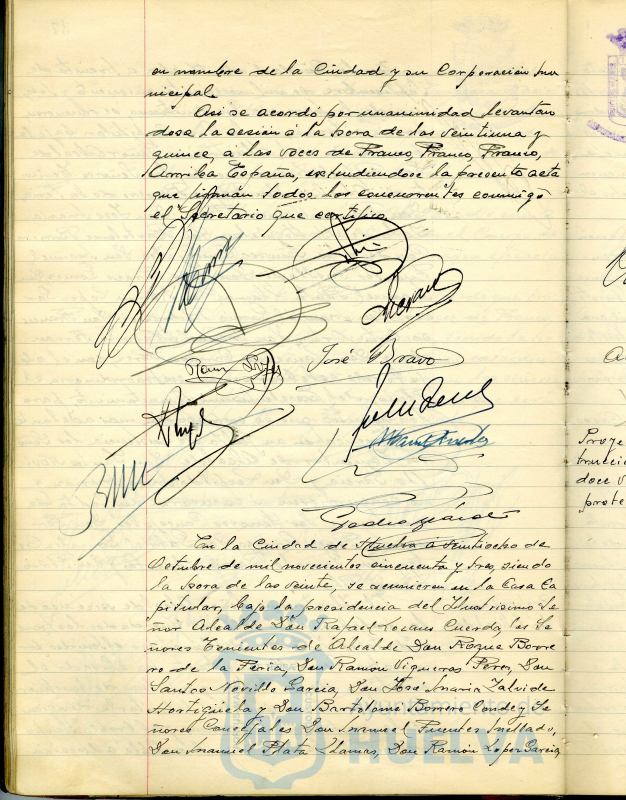 en nombre de la Ciudad y su Corporación mu
nicipal.
Asi se acordó por unanimidad levantan
dose la sesión á la hora de las veintiuna y
quince, á las voces de Franco, Franco, Franco,
Arriba España, extendiendose la presente acta
que firman todos los concurrentes conmigo
el Secretario que certifico.
José Bravo
En la Ciudad de Huelva a veintiocho de
Octubre de mil novecientos cincuenta y tres, siendo
la hora de las veinte, se reunieron en la Casa Ca
pitular, bajo la presidencia del Ilustrisimo Se
ñor Alcalde Don Rafael Lozano Cuerda, los Se
ñores Tenientes de Alcalde Don Roque Borre
ro de la Feria, Don Ramón Vigueras Perez, Don
Santos Novillo Garcia, Don José Maria Zalvide
Hortigüela y Don Bartolomé Borrero Conde y Se
ñores Concejales Don Manuel Fuentes Mellado,
Don Manuel Plata Llamas, Don Ramón Lopez Garcia,
Ayuntamiento de
HUELVA
Proye
trucció
doce v
prote